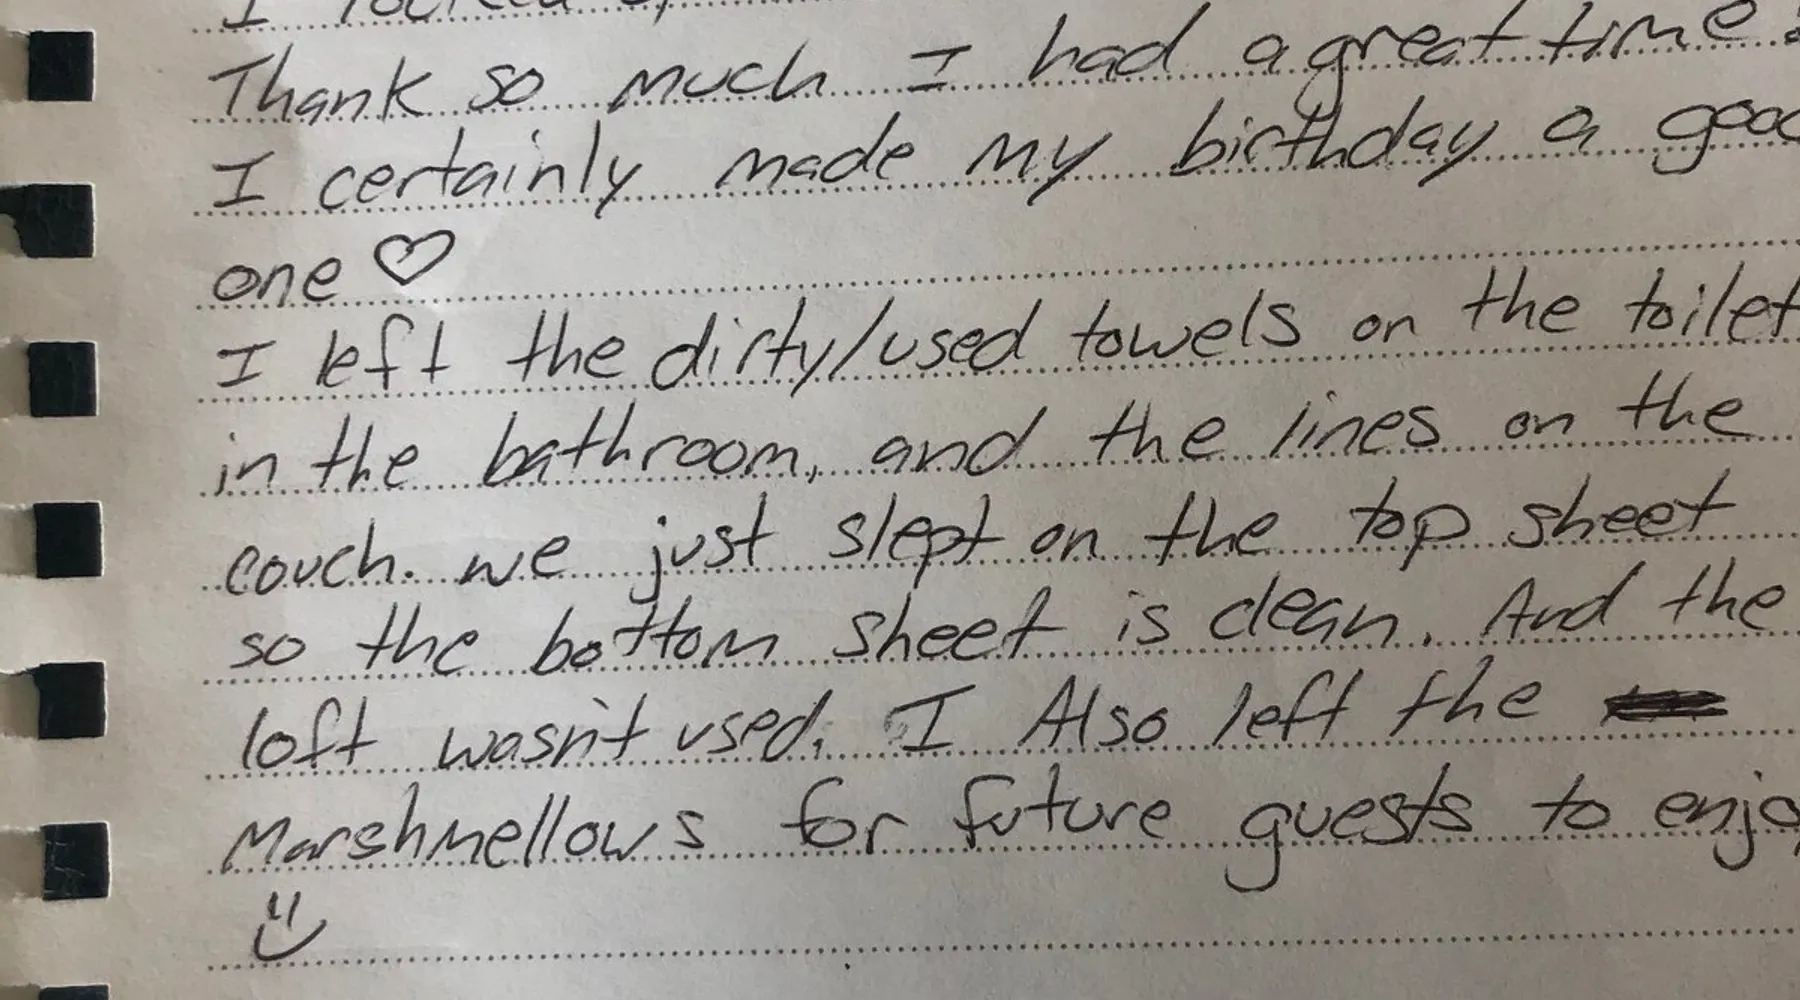 I locked
Thank so much I had a great time!
I certainly made my birthday a good
one ♡
I left the dirty/used towels on the toilet
in the bathroom, and the lines on the
couch. we just slept on the top sheet
so the bottom sheet is clean. And the
loft wasn't used. I Also left the
Marshmellows for future guests to enjoy